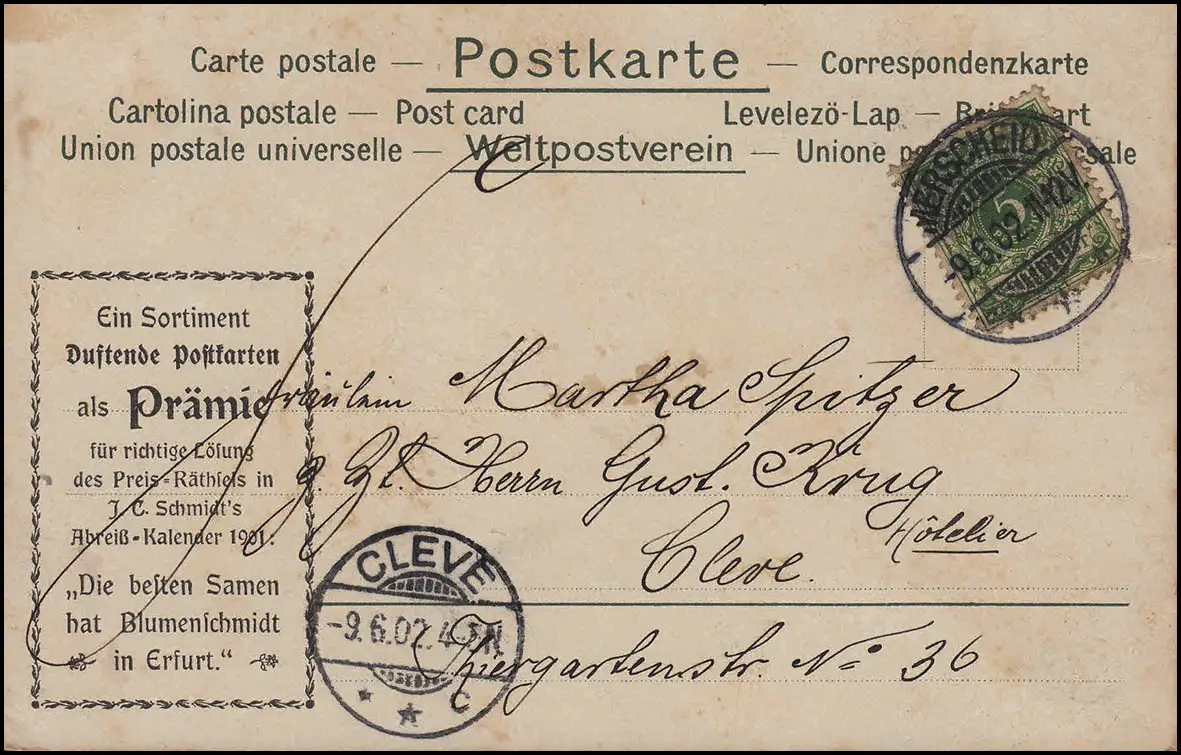 Carte postale — Postkarte — Correspondenzkarte
Cartolina postale — Post card
Levelezö-Lap —
Union postale universelle — Weltpostverein — Unione
MERSCHEID
-9.6.02.11-12V.
5
Ein Sortiment
Duftende Postkarten
als Prämie
für richtige Lösung
des Preis-Räthsels in
J. C. Schmidt's
Abreiß-Kalender 1901:
„Die besten Samen
hat Blumenschmidt
in Erfurt."
Fräulein Martha Spitzer
z. Zt. Herrn Gust. Krug
Hôtelier
Cleve.
Thiergartenstr. No 36
CLEVE
-9.6.02.4-5N
* * c